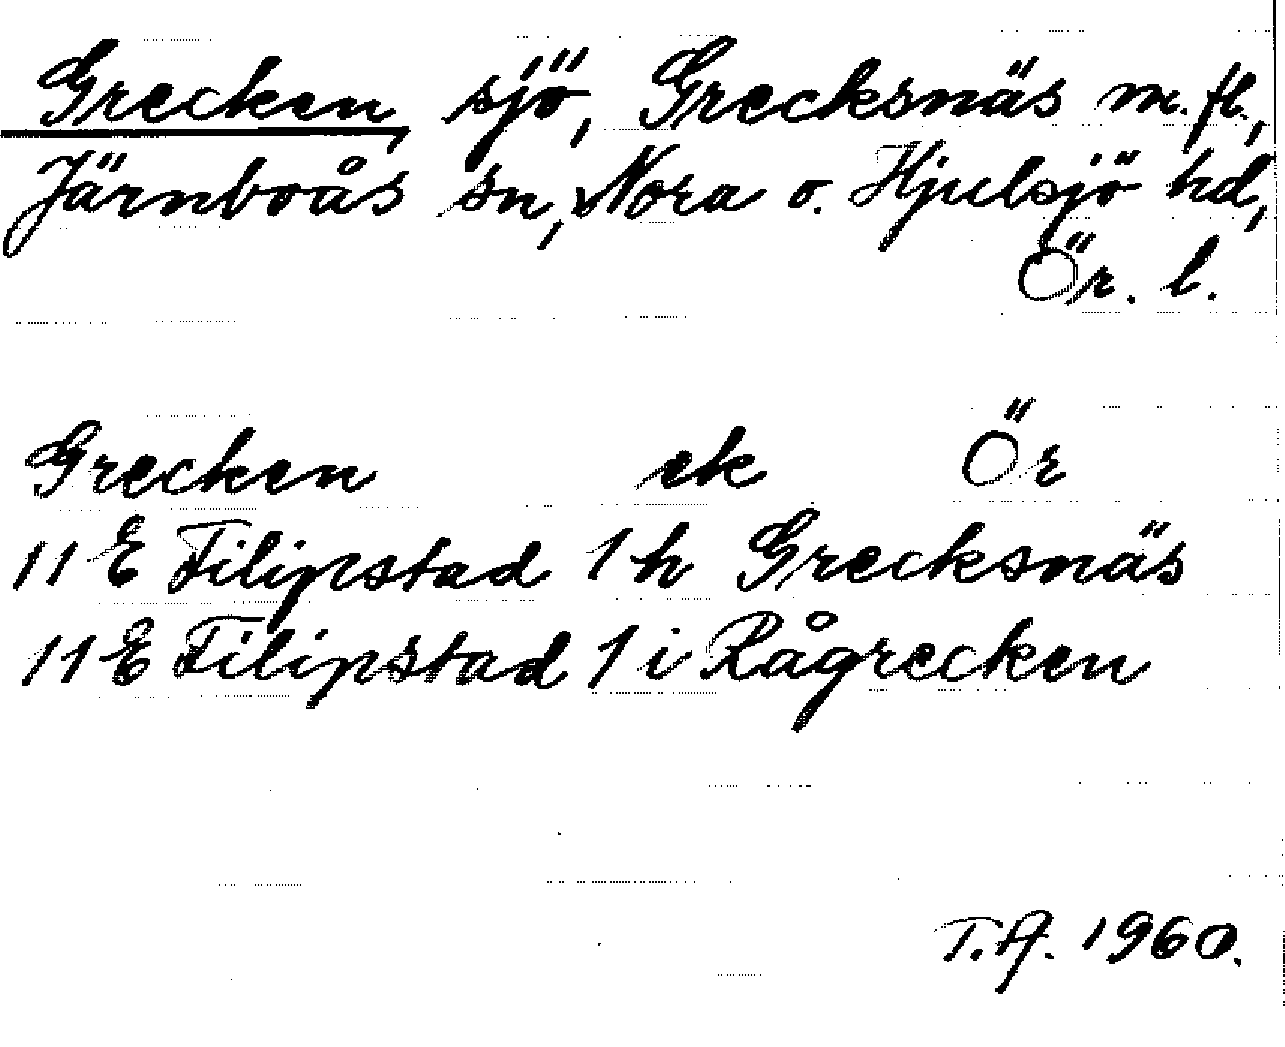 Grecken, sjö, Grecksnäs m.fl.,
Järnboås sn, Nora o. Hjulsjö hd,
Ör. l.
Grecken ek Ör
11 E Filipstad 1 h Grecksnäs
11 E Filipstad 1 i Rågrecken
T.A. 1960.